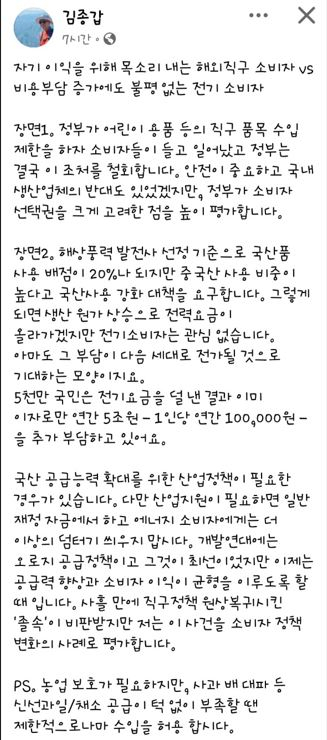 김종갑
7시간
자기 이익을 위해 목소리 내는 해외직구 소비자 vs
비용부담 증가에도 불평 없는 전기 소비자
장면1. 정부가 어린이 용품 등의 직구 품목 수입
제한을 하자 소비자들이 들고 일어났고 정부는
결국 이 조처를 철회합니다. 안전이 중요하고 국내
생산업체의 반대도 있었겠지만, 정부가 소비자
선택권을 크게 고려한 점을 높이 평가합니다.
장면2. 해상풍력 발전사 선정 기준으로 국산품
사용 배점이 20%나 되지만 중국산 사용 비중이
높다고 국산사용 강화 대책을 요구합니다. 그렇게
되면 생산 원가 상승으로 전력요금이
올라가겠지만 전기소비자는 관심 없습니다.
아마도 그 부담이 다음 세대로 전가될 것으로
기대하는 모양이지요.
5천만 국민은 전기요금을 덜 낸 결과 이미
이자로만 연간 5조원 - 1인당 연간 100,000원 -
을 추가 부담하고 있어요.
국산 공급능력 확대를 위한 산업정책이 필요한
경우가 있습니다. 다만 산업지원이 필요하면 일반
재정 자금에서 하고 에너지 소비자에게는 더
이상의 덤터기 씌우지 맙시다. 개발연대에는
오로지 공급정책이고 그것이 최선이었지만 이제는
공급력 향상과 소비자 이익이 균형을 이루도록 할
때 입니다. 사흘 만에 직구정책 원상복귀시킨
'졸속'이 비판받지만 저는 이 사건을 소비자 정책
변화의 사례로 평가합니다.
PS. 농업 보호가 필요하지만, 사과 배 대파 등
신선과일/채소 공급이 턱 없이 부족할 땐
제한적으로나마 수입을 허용 합시다.